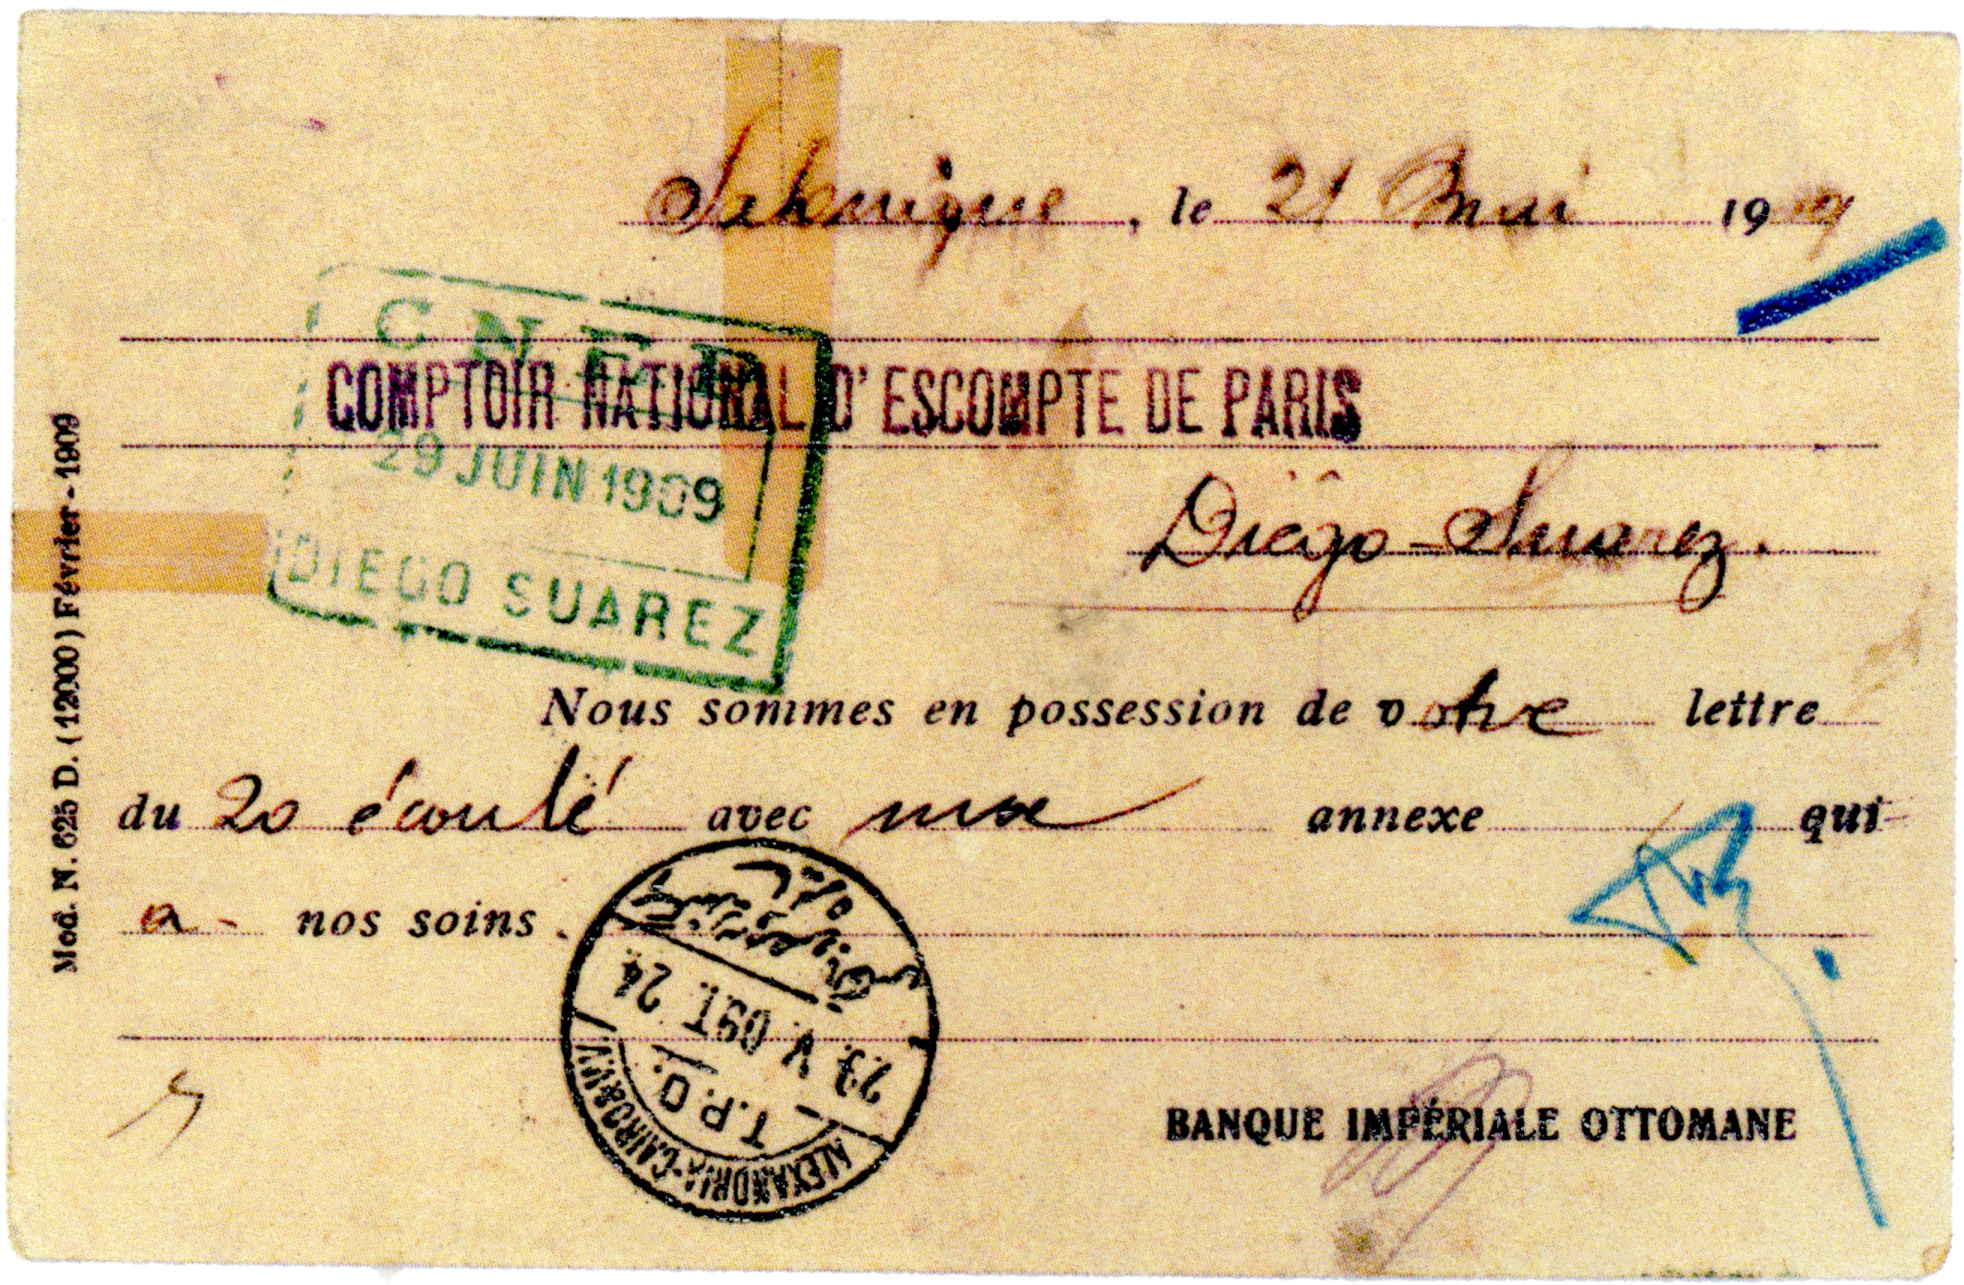 Salonique, le 21 Mai 1909
C N E P
COMPTOIR NATIONAL D'ESCOMPTE DE PARIS
29 JUIN 1909
Diégo-Suarez.
DIEGO SUAREZ
Nous sommes en possession de votre lettre
du 20 écoulé avec une annexe qui
a nos soins.
23. V. 09 T. 24
T.P.O.
ALEXANDRIA-CAIRO & V.V.
BANQUE IMPÉRIALE OTTOMANE
Mod. N. 625 D. (12000) Février-1909